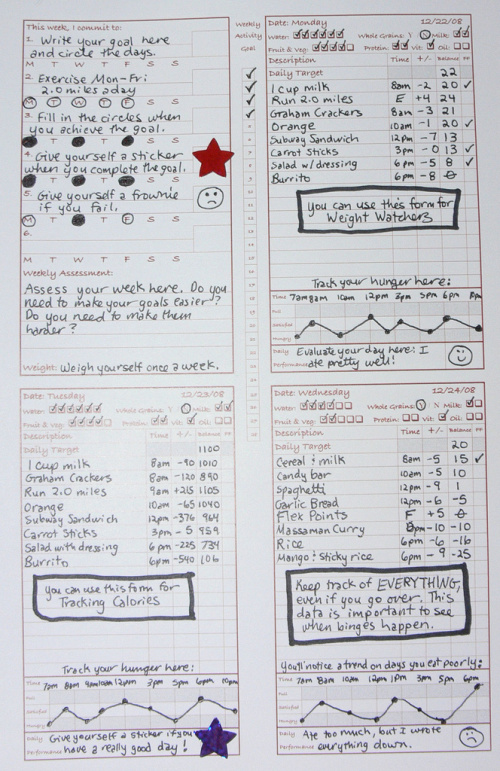 This week, I commit to:
1. Write your goal here
and circle the days.
M T W T F S S
2. Exercise Mon-Fri
2.0 miles a day
M T W T F S S
3. Fill in the circles when
you achieve the goal.
M T W T F S S
4. Give yourself a sticker
when you complete the goal.
M T W T F S S
5. Give yourself a frownie
if you fail.
M T W T F S S
6.
M T W T F S S
Weekly Assessment:
Assess your week here. Do you
need to make your goals easier?
Do you need to make them
harder?
Weight: Weigh yourself once a week.
Weekly
Activity
Goal
Date: Monday 12/22/08
Water: Whole Grains: Y Milk:
Fruit & Veg: Protein: Vit: Oil:
Description Time +/- Balance FF
Daily Target 22
1 cup milk 8am -2 20
Run 2.0 miles E +4 24
Graham Crackers 8am -3 21
Orange 10am -1 20
Subway Sandwich 12pm -7 13
Carrot Sticks 3pm -0 13
Salad w/dressing 6pm -5 8
Burrito 6pm -8 0
You can use this form for
Weight Watchers
Track your hunger here:
Time 7am 8am 10am 12pm 3pm 5pm 6pm 8pm
Full
Satisfied
Hungry
Daily Performance Evaluate your day here: I
ate pretty well!
Date: Tuesday 12/23/08
Water: Whole Grains: Y Milk:
Fruit & Veg: Protein: Vit: Oil:
Description Time +/- Balance FF
Daily Target 1100
1 cup milk 8am -90 1010
Graham Crackers 8am -120 890
Run 2.0 miles 9am +215 1105
Orange 10am -65 1040
Subway Sandwich 12pm -376 964
Carrot Sticks 3pm -5 959
Salad with dressing 6pm -225 734
Burrito 6pm -540 106
You can use this form for
Tracking Calories
Track your hunger here:
Time 7am 8am 9am 10am 12pm 3pm 5pm 6pm 10pm
Full
Satisfied
Hungry
Daily Performance Give yourself a sticker if you
have a really good day!
Date: Wednesday 12/24/08
Water: Whole Grains: Y N Milk:
Fruit & Veg: Protein: Vit: Oil:
Description Time +/- Balance FF
Daily Target 20
Cereal & milk 8am -5 15
Candy bar 10am -5 10
Spaghetti 12pm -9 1
Garlic Bread 12pm -6 -5
Flex Points F +5 0
Massaman Curry 6pm -10 -10
Rice 6pm -6 -16
Mango & sticky rice 6pm -9 -25
Keep track of EVERYTHING,
even if you go over. This
data is important to see
when binges happen.
You'll notice a trend on days you eat poorly:
Time 7am 8am 10am 12pm 3pm 5pm 6pm
Full
Satisfied
Hungry
Daily Performance Ate too much, but I wrote
everything down.